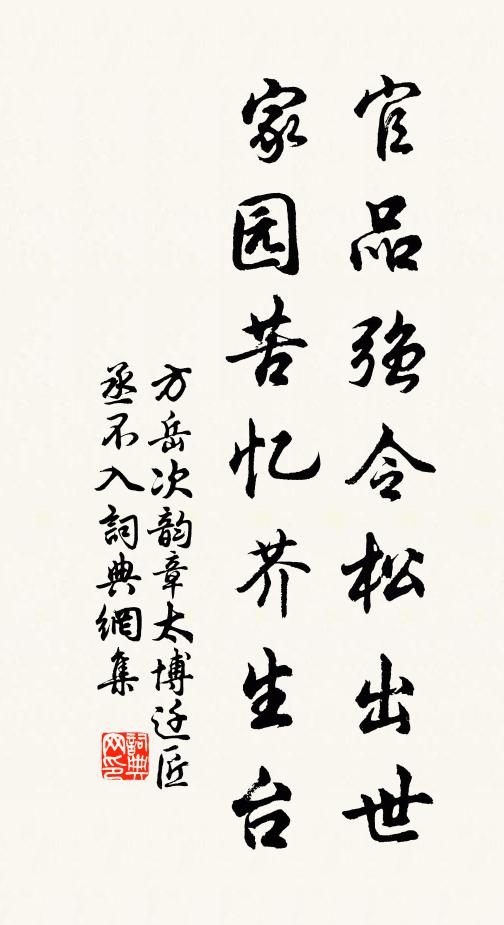 官品强令松出世
家园苦忆芥生台
方岳次韵章太博迁匠
丞不入詞典網集
詞典
网印